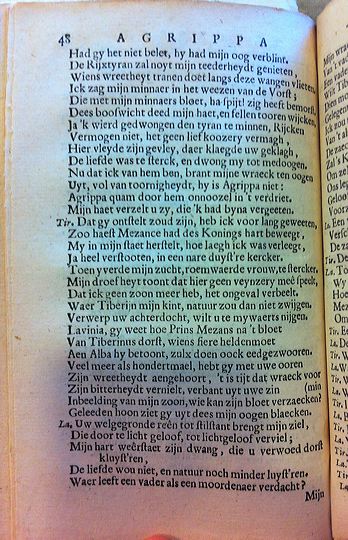 48 AGRIPPA
Had gy het niet belet, hy had mijn oog verblint.
De Rijxtyran zal noyt mijn teederheydt genieten,
Wiens wreetheyt tranen doet langs deze wangen vlieten.
Ick zag mijn minnaer in het weezen van de Vorst;
Die met mijn minnaers bloet, ha spijt! zig heeft bemorst,
Dees boofwicht deed mijn haet, en fellen tooren wijcken,
Ja 'k wierd gedwongen den tyran te minnen, Rijcken
Vermogen niet, het geen lief koozery vermagh,
Hier vleyde zijn gevley, daer klaegde uw geklagh,
De liefde was te sterck, en dwong my tot medoogen.
Nu dat ick van hem ben, brant mijne wraeck ten oogen
Uyt, vol van toornigheydt, hy is Agrippa niet:
Agrippa quam door hem onnoozel in 't verdriet.
Mijn haet verzelt u zy, die 'k had byna vergeeten.
Tir. Dat gy ontstelt zoud zijn, heb ick voor lang geweeten,
Zoo haest Mezance had des Konings hart beweegt,
My in mijn staet herstelt, hoe laegh ick was verleegt,
Ja heel verstooten, in een nare duyst're kercker.
Toen yverde mijn zucht, roemwaerde vrouw, te stercker.
Mijn droef heyt toont dat hier geen veynzery meê speelt,
Dat ick geen zoon meer heb, het ongeval verbeelt.
Waer Tiberijn mijn kint, natuur zou dan niet zwijgen.
Verwerp uw achterdocht, wilt u te mywaerts nijgen.
Lavinia, gy weet hoe Prins Mezans na 't bloet
Van Tiberinus dorst, wiens fiere heldenmoet
Aen Alba hy betoont, zulx doen oock eedgezwooren.
Veel meer als hondertmael, hebt gy met uwe ooren
Zijn wreetheydt aengehoort, 't is tijt dat wraeck voor
Zijn bitterheydt vernielt, verbant uyt uwe zin (min
Inbeelding van mijn zoon, wie kan zijn bloet verzaecken?
Geleeden hoon ziet gy uyt dees mijn oogen blaecken.
La. Uw welgegronde reên tot stilstant brengt mijn ziel,
Die door te licht geloof, tot lichtgeloof verviel;
Mijn hart weêrstaet zijn dwang, die u verwoed dorst
kluyst'ren,
De liefde wou niet, en natuur noch minder luyst'ren.
Waer leeft een vader als een moordenaer verdacht?
Mijn